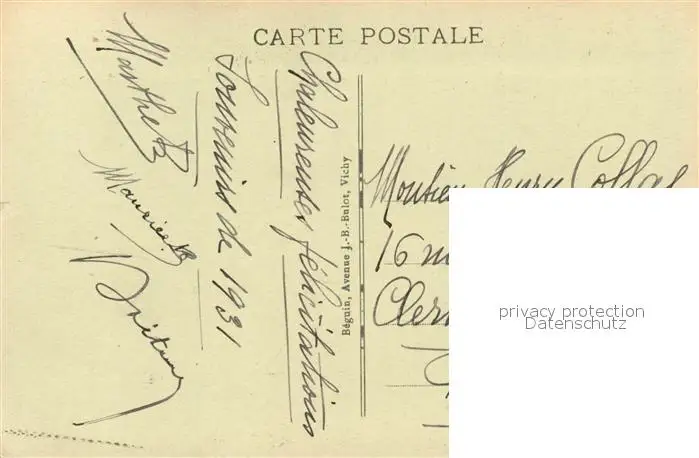 CARTE POSTALE
Chaleureuses félicitations
Souvenirs de 1931
Marthe B
Maurice B
Béguin, Avenue J.-B.-Bulot, Vichy
Monsieur Henry
16
Cler
privacy protection
Datenschutz